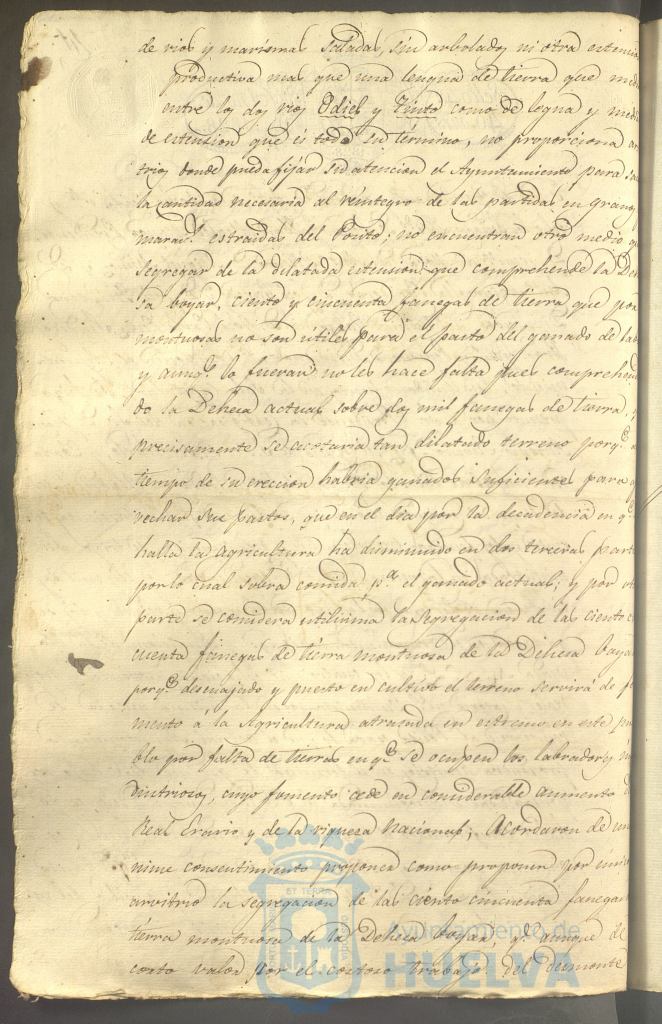 de rios y marismas saladas, sin arbolados ni otra estencion
productiva mas que una lengua de tierra que med
entre los dos rios Odiel y Tinto como de legua y media
de estension que es todo su término, no proporciona ar
trios donde pueda fijar su atencion el Ayuntamiento para sa
la cantidad necesaria al reintegro de las partidas en granos
marav.s estraidas del Posito; no encuentran otro medio q
segregar de la dilatada estension que comprehende la De
sa boyar, ciento y cincuenta fanegas de tierra que por
montuosas no son útiles para el pasto del ganado de lab
y aunq.e lo fueran no les hace falta pues comprehen
do la Dehesa actual sobre dos mil fanegas de tierra, y
precisamente se acotaria tan dilatado terreno porq.e a
tiempo de su ereccion habria ganados suficientes para a
vechar sus pastos, que en el dia por la decadencia en q.e
halla la Agricultura ha disminuido en dos terceras part
por lo cual sobra comida p.a el ganado actual; y por ot
parte se considera utilisima la segregacion de las ciento c
cuenta fanegas de tierra montuosa de la Dehesa boya
porq.e descuajado y puesto en cultivo el terreno servirá de f
mento á la Agricultura atrasada en estremo en este pu
blo por falta de tierras en q.e se ocupen los labradores y in
dustriosos, cuyo fomento cede en considerable aumento d
Real Erario y de la riqueza Nacional; Acordaron de un
nime consentimiento proponer como proponen por único
arvitrio la segregacion de las ciento cincuenta fanegas
tierra montuosa de la Dehesa boyar, q.e aunque de
corto valor por el costoso trabajo del desmonte
ET TERRAE
Ayuntamiento de
HUELVA